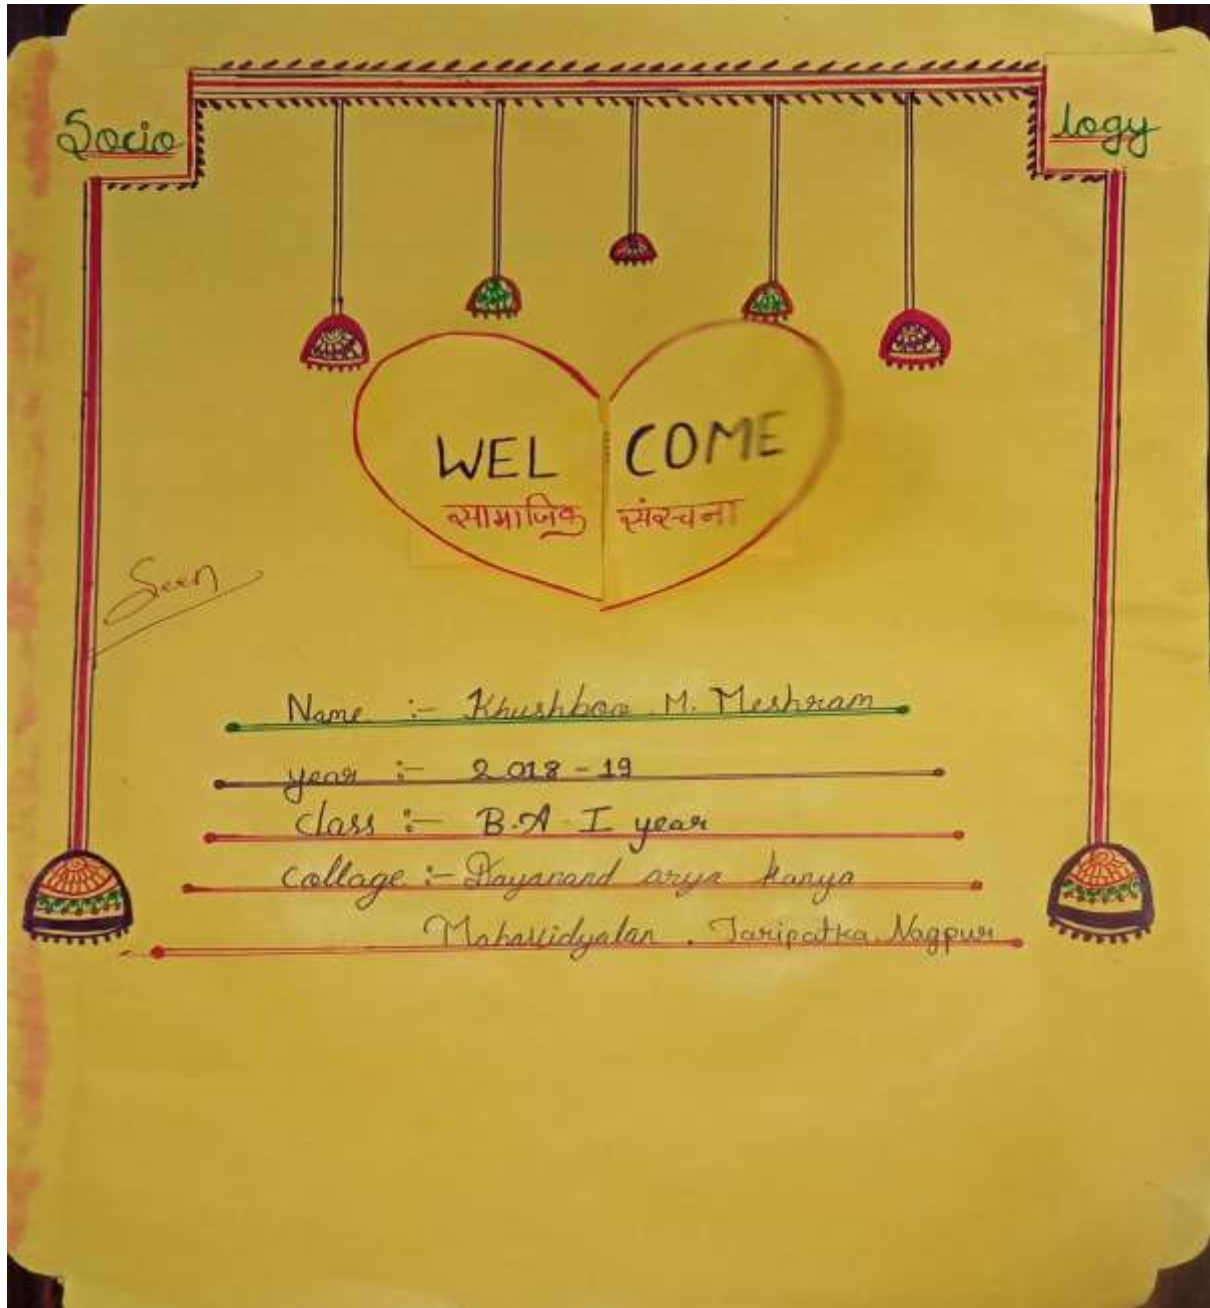 Socio logy
WEL COME
सामाजिक संरचना
Seen
Name :- Khushboo M. Meshram
year :- 2018-19
class :- B.A I year
Collage :- Dayanand arya kanya
Mahavidyalan . Jaripatka Nagpur